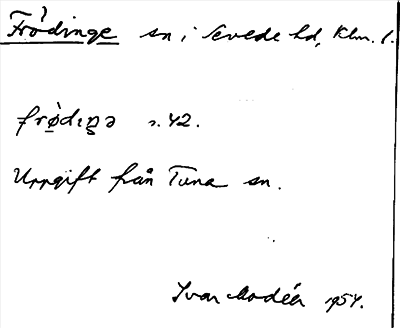 Frödinge sn i Sevede hd, Klm. l.
frø̀dıŋə s. 42.
Uppgift från Tuna sn.
Ivar Modéer 1954.